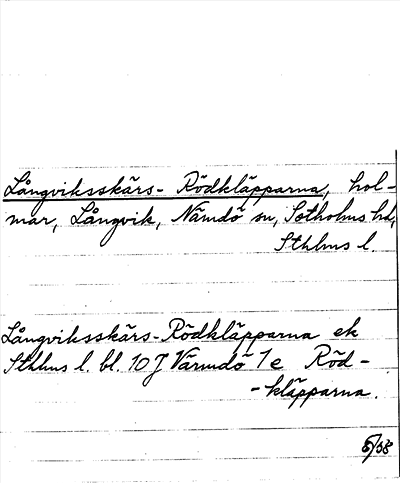 Långviksskärs-Rödkläpparna, hol-
mar, Långvik, Nämdö sn, Sotholms hd,
Sthlms l.
Långviksskärs-Rödkläpparna ek
Sthlms l. bl. 10 J Värmdö 1e Röd-
-kläpparna.
5/38